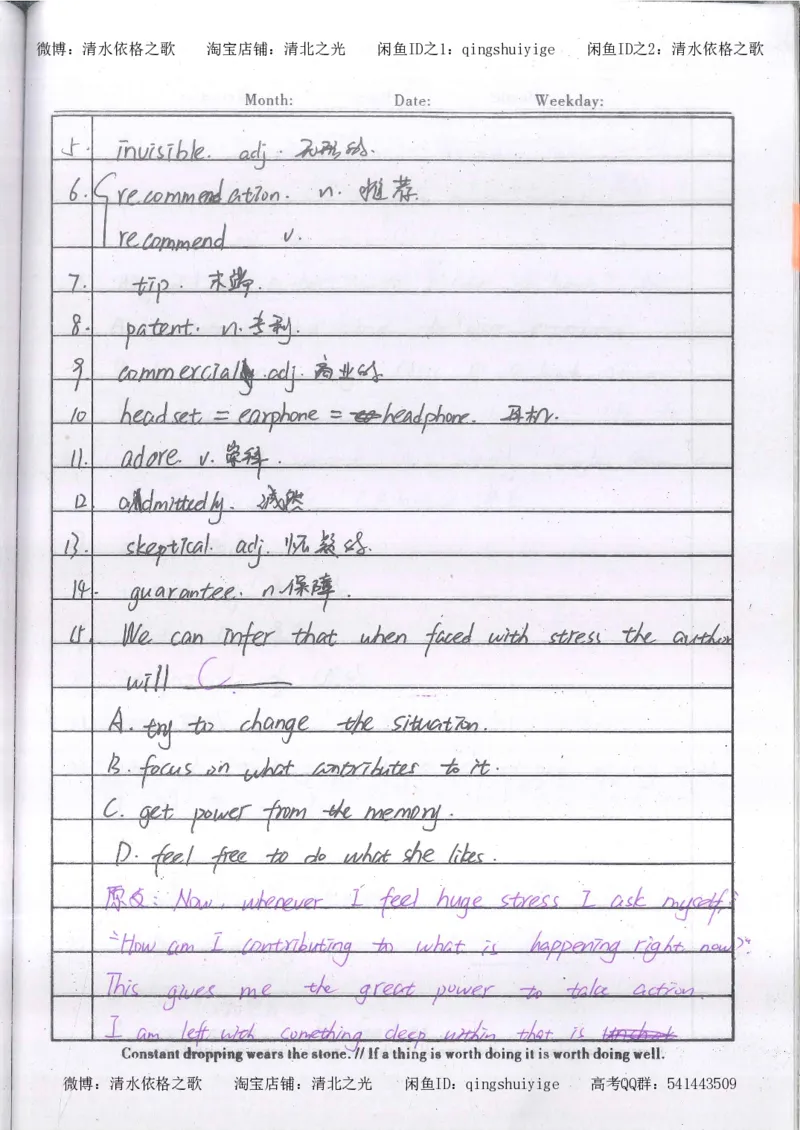 微博：清水依格之歌 淘宝店铺：清北之光 闲鱼ID之1：qingshuiyige 闲鱼ID之2：清水依格之歌
Month: Date: Weekday:
5. invisible. adj. 无形的.
6. recommendation. n. 推荐.
recommend v.
7. tip. 末端.
8. patent. n. 专利.
9. commercial adj. 商业的
10 headset = earphone = headphone. 耳机.
11. adore. v. 崇拜.
12. admittedly. 诚然
13. skeptical. adj. 怀疑的.
14. guarantee. n. 保障.
15. We can infer that when faced with stress the author
will C
A. try to change the situation.
B. focus on what contributes to it.
C. get power from the memory.
D. feel free to do what she likes.
原文: Now, whenever I feel huge stress I ask myself,
"How am I contributing to what is happening right now?".
This gives me the great power to take action.
I am left with something deep within that is
Constant dropping wears the stone. // If a thing is worth doing it is worth doing well.
微博：清水依格之歌 淘宝店铺：清北之光 闲鱼ID：qingshuiyige 高考QQ群：541443509